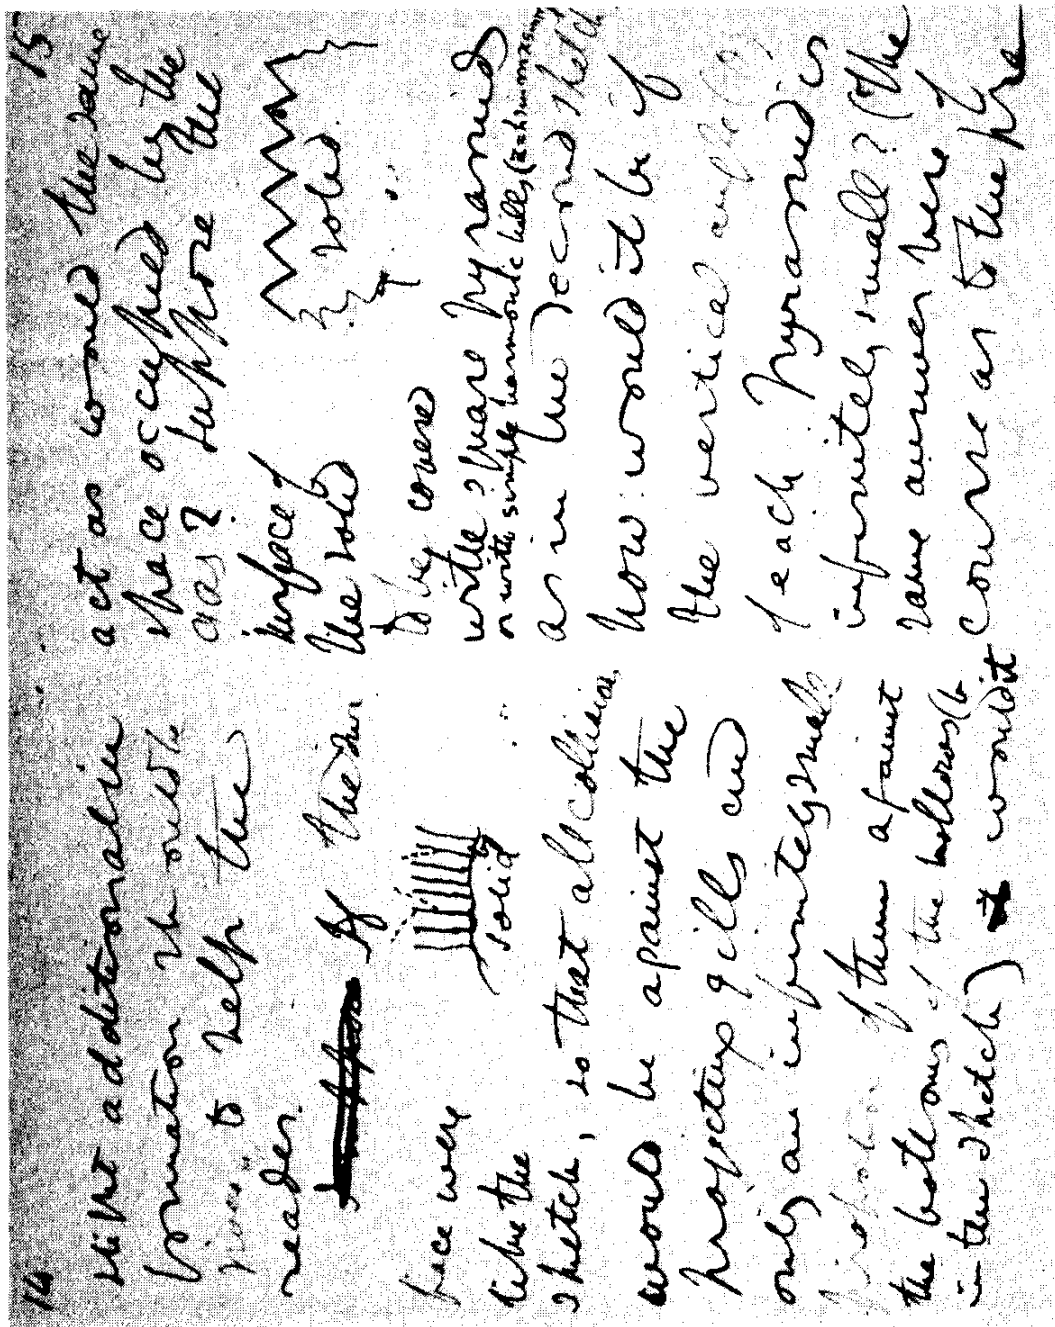 14
slight additional in
formation should be
given to help the
reader.
If the sur
face were
like the
solid
sketch, so that all collisions
would be against the
projecting gills and
only an infinitely small
proportion of them against
the bottoms of the hollows (b
in the sketch) would it
15
act as would the same
space occupied by the
gas? Suppose the
surface of
the solid
solid
to be covered
with square pyramids
or with simple harmonic hills,
as in the second sketch
how would it be if
the vertical angle
of each pyramid is
infinitely small? (The
same answer here of
course as to the pre